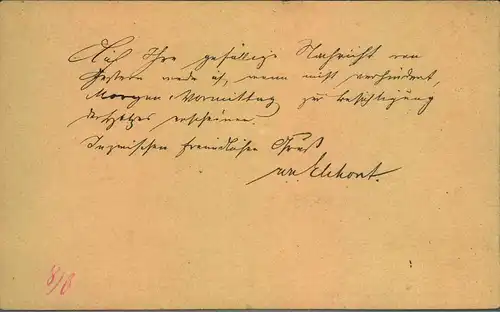 Auf Ihre gefällige Nachricht von
Gestern werde ich, wenn nicht verhindert,
Morgen Vormittag zur Besichtigung
des Holzes erscheinen.
Inzwischen freundlichen Gruß
8/8